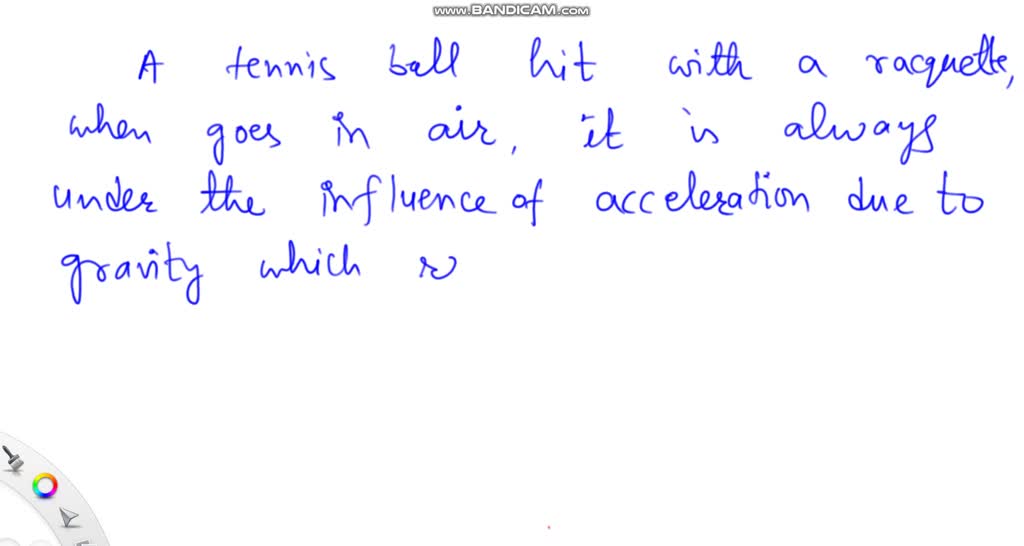 www.BANDICAM.com
A tennis ball hit with a racquette,
when goes in air, it is always
under the influence of acceleration due to
gravity which